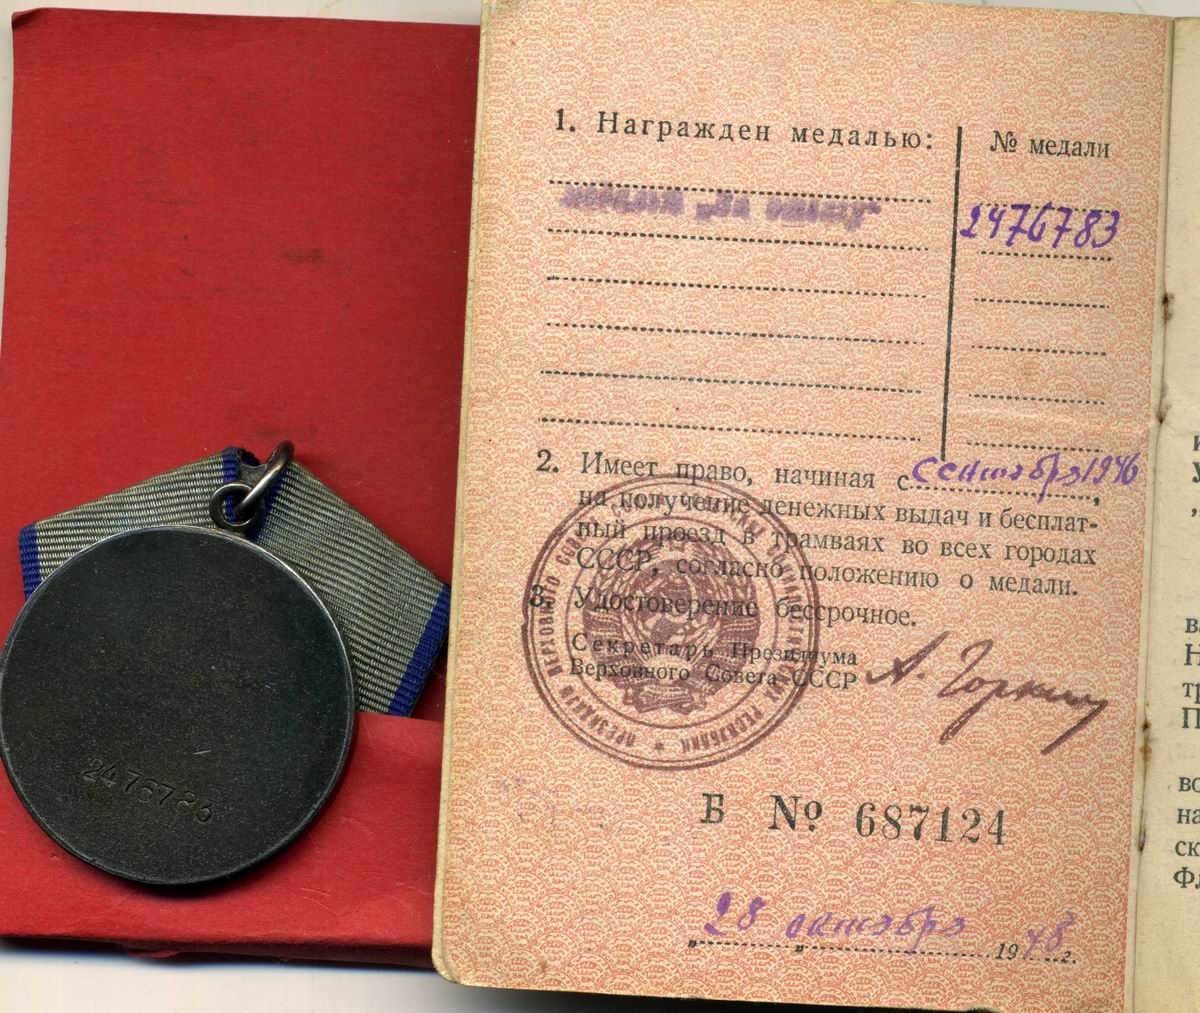 1. Награжден медалью:
№ медали
медалью „За отвагу"
2476783
2. Имеет право, начиная с сентября 1946,
на получение денежных выдач и бесплат-
ный проезд в трамваях во всех городах
СССР, согласно положению о медали.
3. Удостоверение бессрочное.
Секретарь Президиума
Верховного Совета СССР
А. Горкин
Б № 687124
„28" октября 1948 г.
2476783